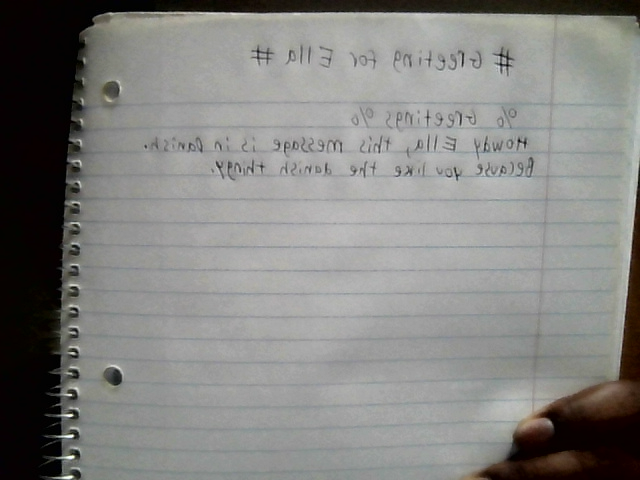 # Greeting for Ella #
% Greetings %
Howdy Ella, this message is in Danish.
Because you like the danish thingy.